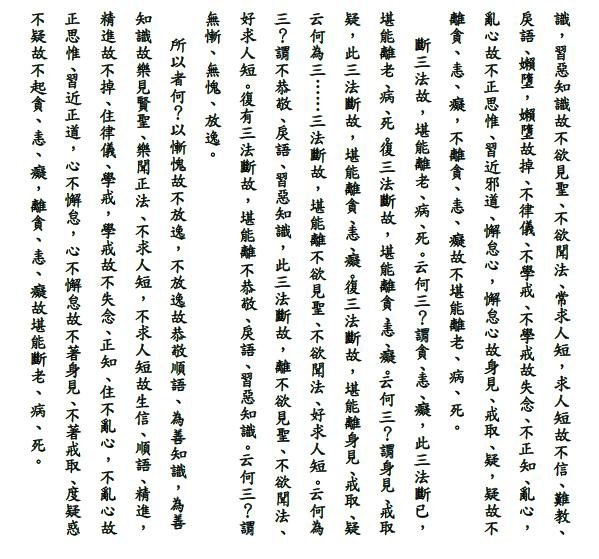 識，習惡知識故不欲見聖、不欲聞法、常求人短，求人短故不信、難教、
戾語、嬾墮，嬾墮故掉、不律儀、不學戒、不學戒故失念、不正知、亂心，
亂心故不正思惟、習近邪道、懈怠心，懈怠心故身見、戒取、疑，疑故不
離貪、恚、癡，不離貪、恚、癡故不堪能離老、病、死。
斷三法故，堪能離老、病、死。云何三？謂貪、恚、癡，此三法斷已，
堪能離老、病、死。復三法斷故，堪能離貪、恚、癡。云何三？謂身見、戒取
疑，此三法斷故，堪能離貪、恚、癡。復三法斷故，堪能離身見、戒取、疑
云何為三……三法斷故，堪能離不欲見聖、不欲聞法、好求人短。云何為
三？謂不恭敬、戾語、習惡知識，此三法斷故，離不欲見聖、不欲聞法、
好求人短。復有三法斷故，堪能離不恭敬、戾語、習惡知識。云何三？謂
無慚、無愧、放逸。
所以者何？以慚愧故不放逸，不放逸故恭敬順語、為善知識，為善
知識故樂見賢聖、樂聞正法、不求人短，不求人短故生信、順語、精進，
精進故不掉、住律儀、學戒，學戒故不失念、正知、住不亂心，不亂心故
正思惟、習近正道，心不懈怠，心不懈怠故不著身見、不著戒取、度疑惑
不疑故不起貪、恚、癡，離貪、恚、癡故堪能斷老、病、死。